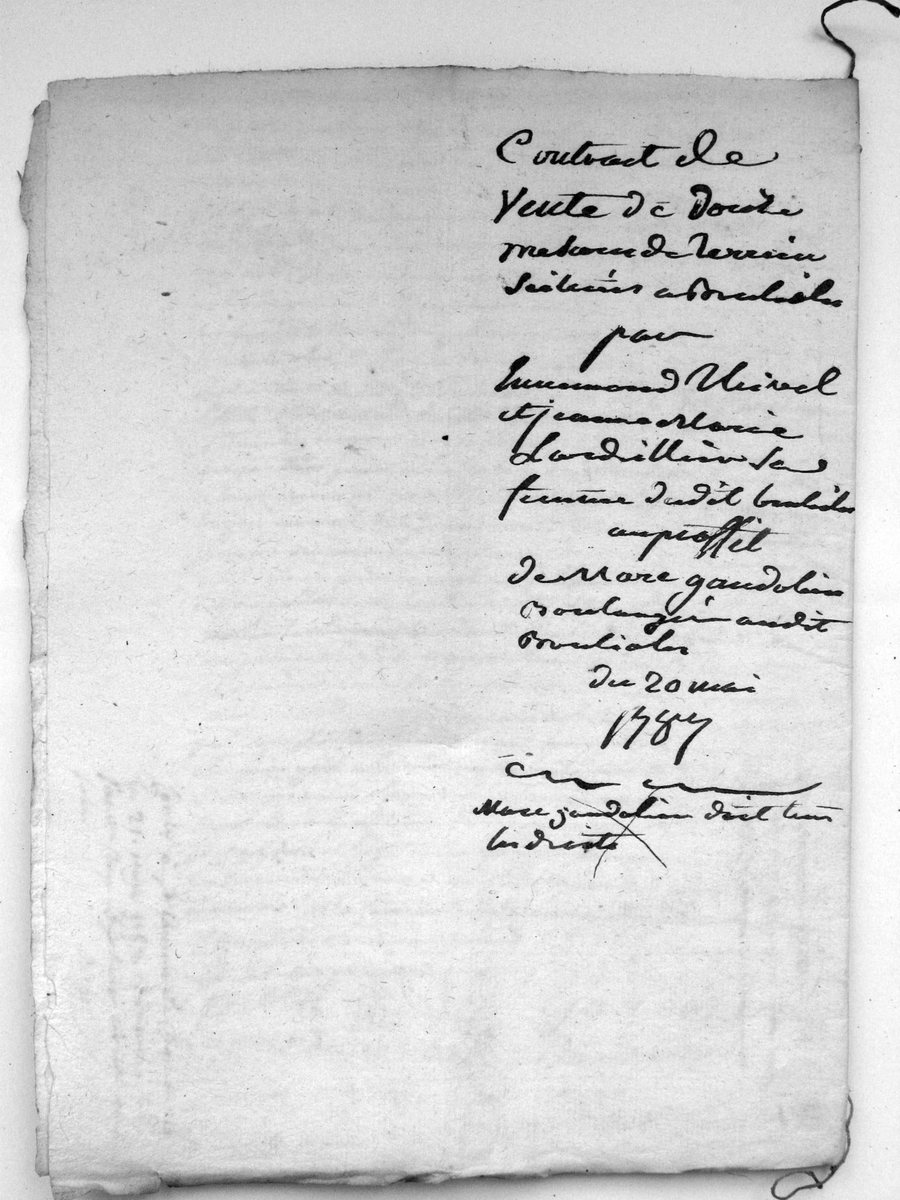 Contract de
Vente de Douze
de terrein
Scitués a
par
Ennemond
et jeanne Marie
Lardillier Sa
femme dudit
au proffit
de Marc gaudolin
Boulanger audit
du 20 mai
1787
Marc gaudolin doit tous
les droits